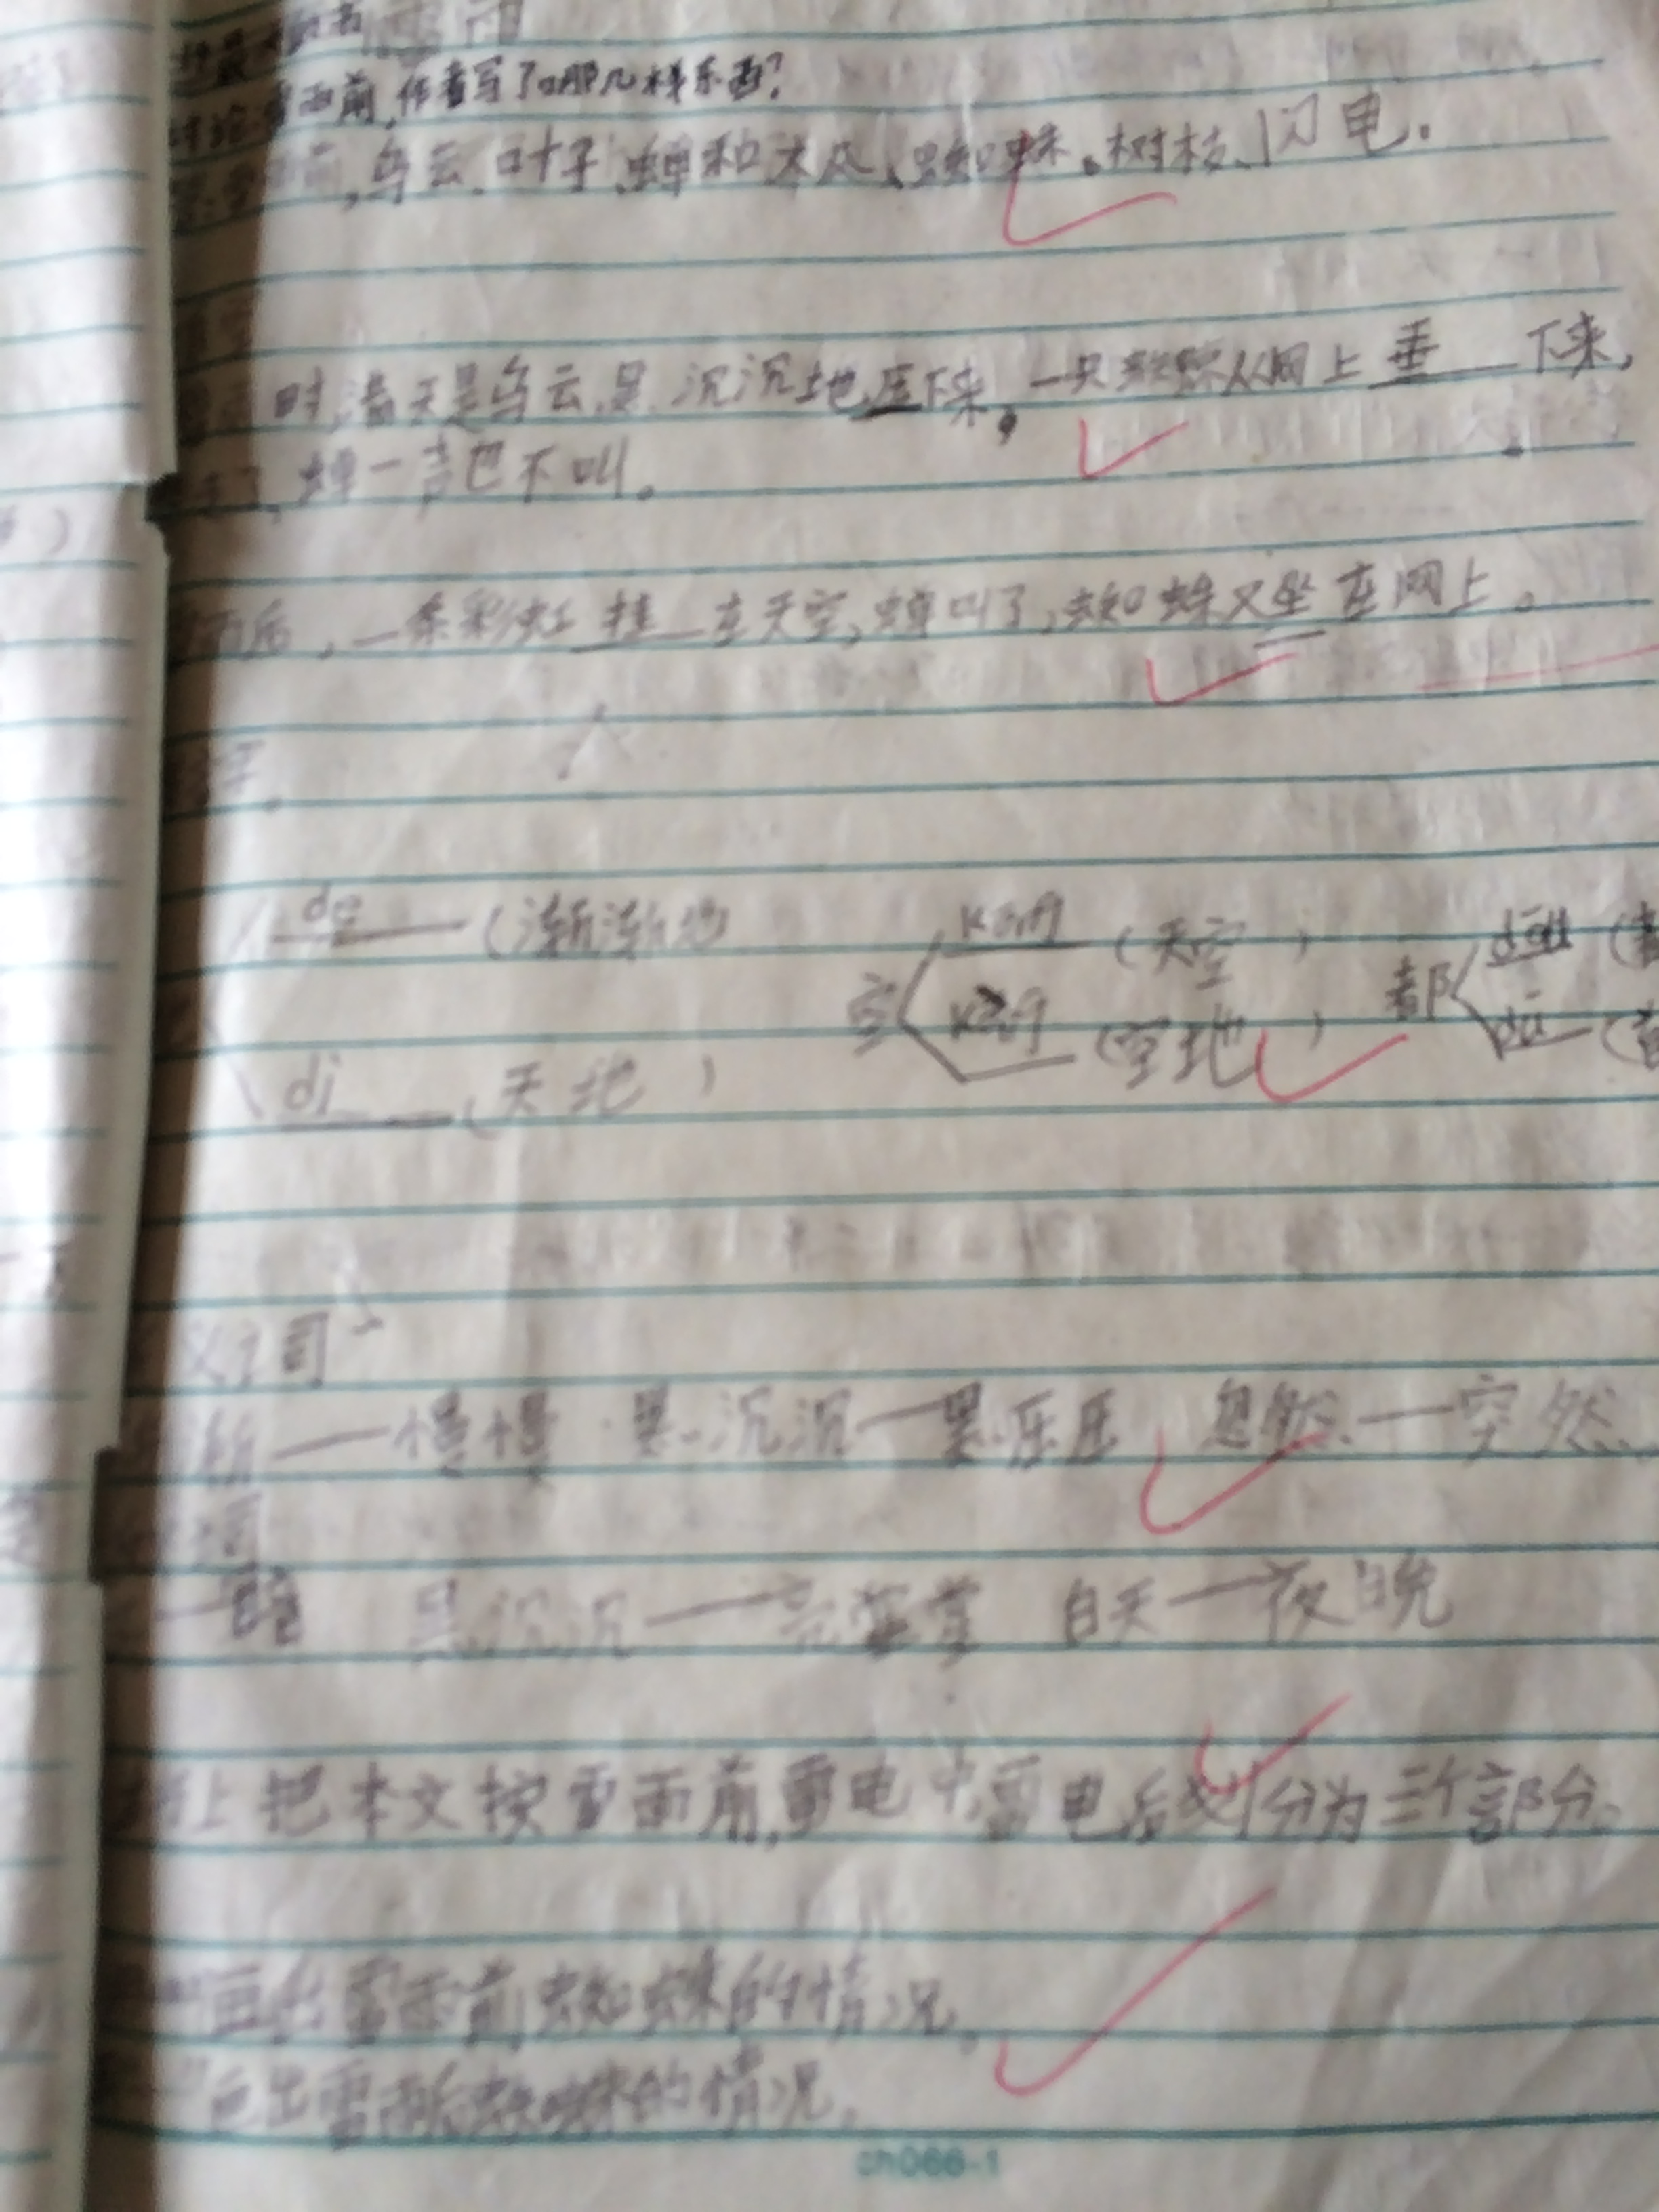 雨前,作者写了哪几样东西?
前,乌云、叶子、蝉和大风、蜘蛛。树枝、闪电.
时,满天是乌云,黑沉沉地压下来。一只蜘蛛从网上垂下来,
,蝉一声也不叫。
雨后,一条彩虹挂在天空,蝉叫了,蜘蛛又坐在网上。
字
de (渐渐地
空 kōng (天空) 都 dōu (
kòng (空地) dū (
dì (天地)
义词
渐——慢慢 黑沉沉——黑压压 忽然——突然
词
—暗 黑沉沉—— 白天——夜晚
上把本文按雷雨前,雷电中,雷电后划分为三个部分。
画出雷雨前蜘蛛的情况。
画出雷雨后蜘蛛的情况.
ch066-1